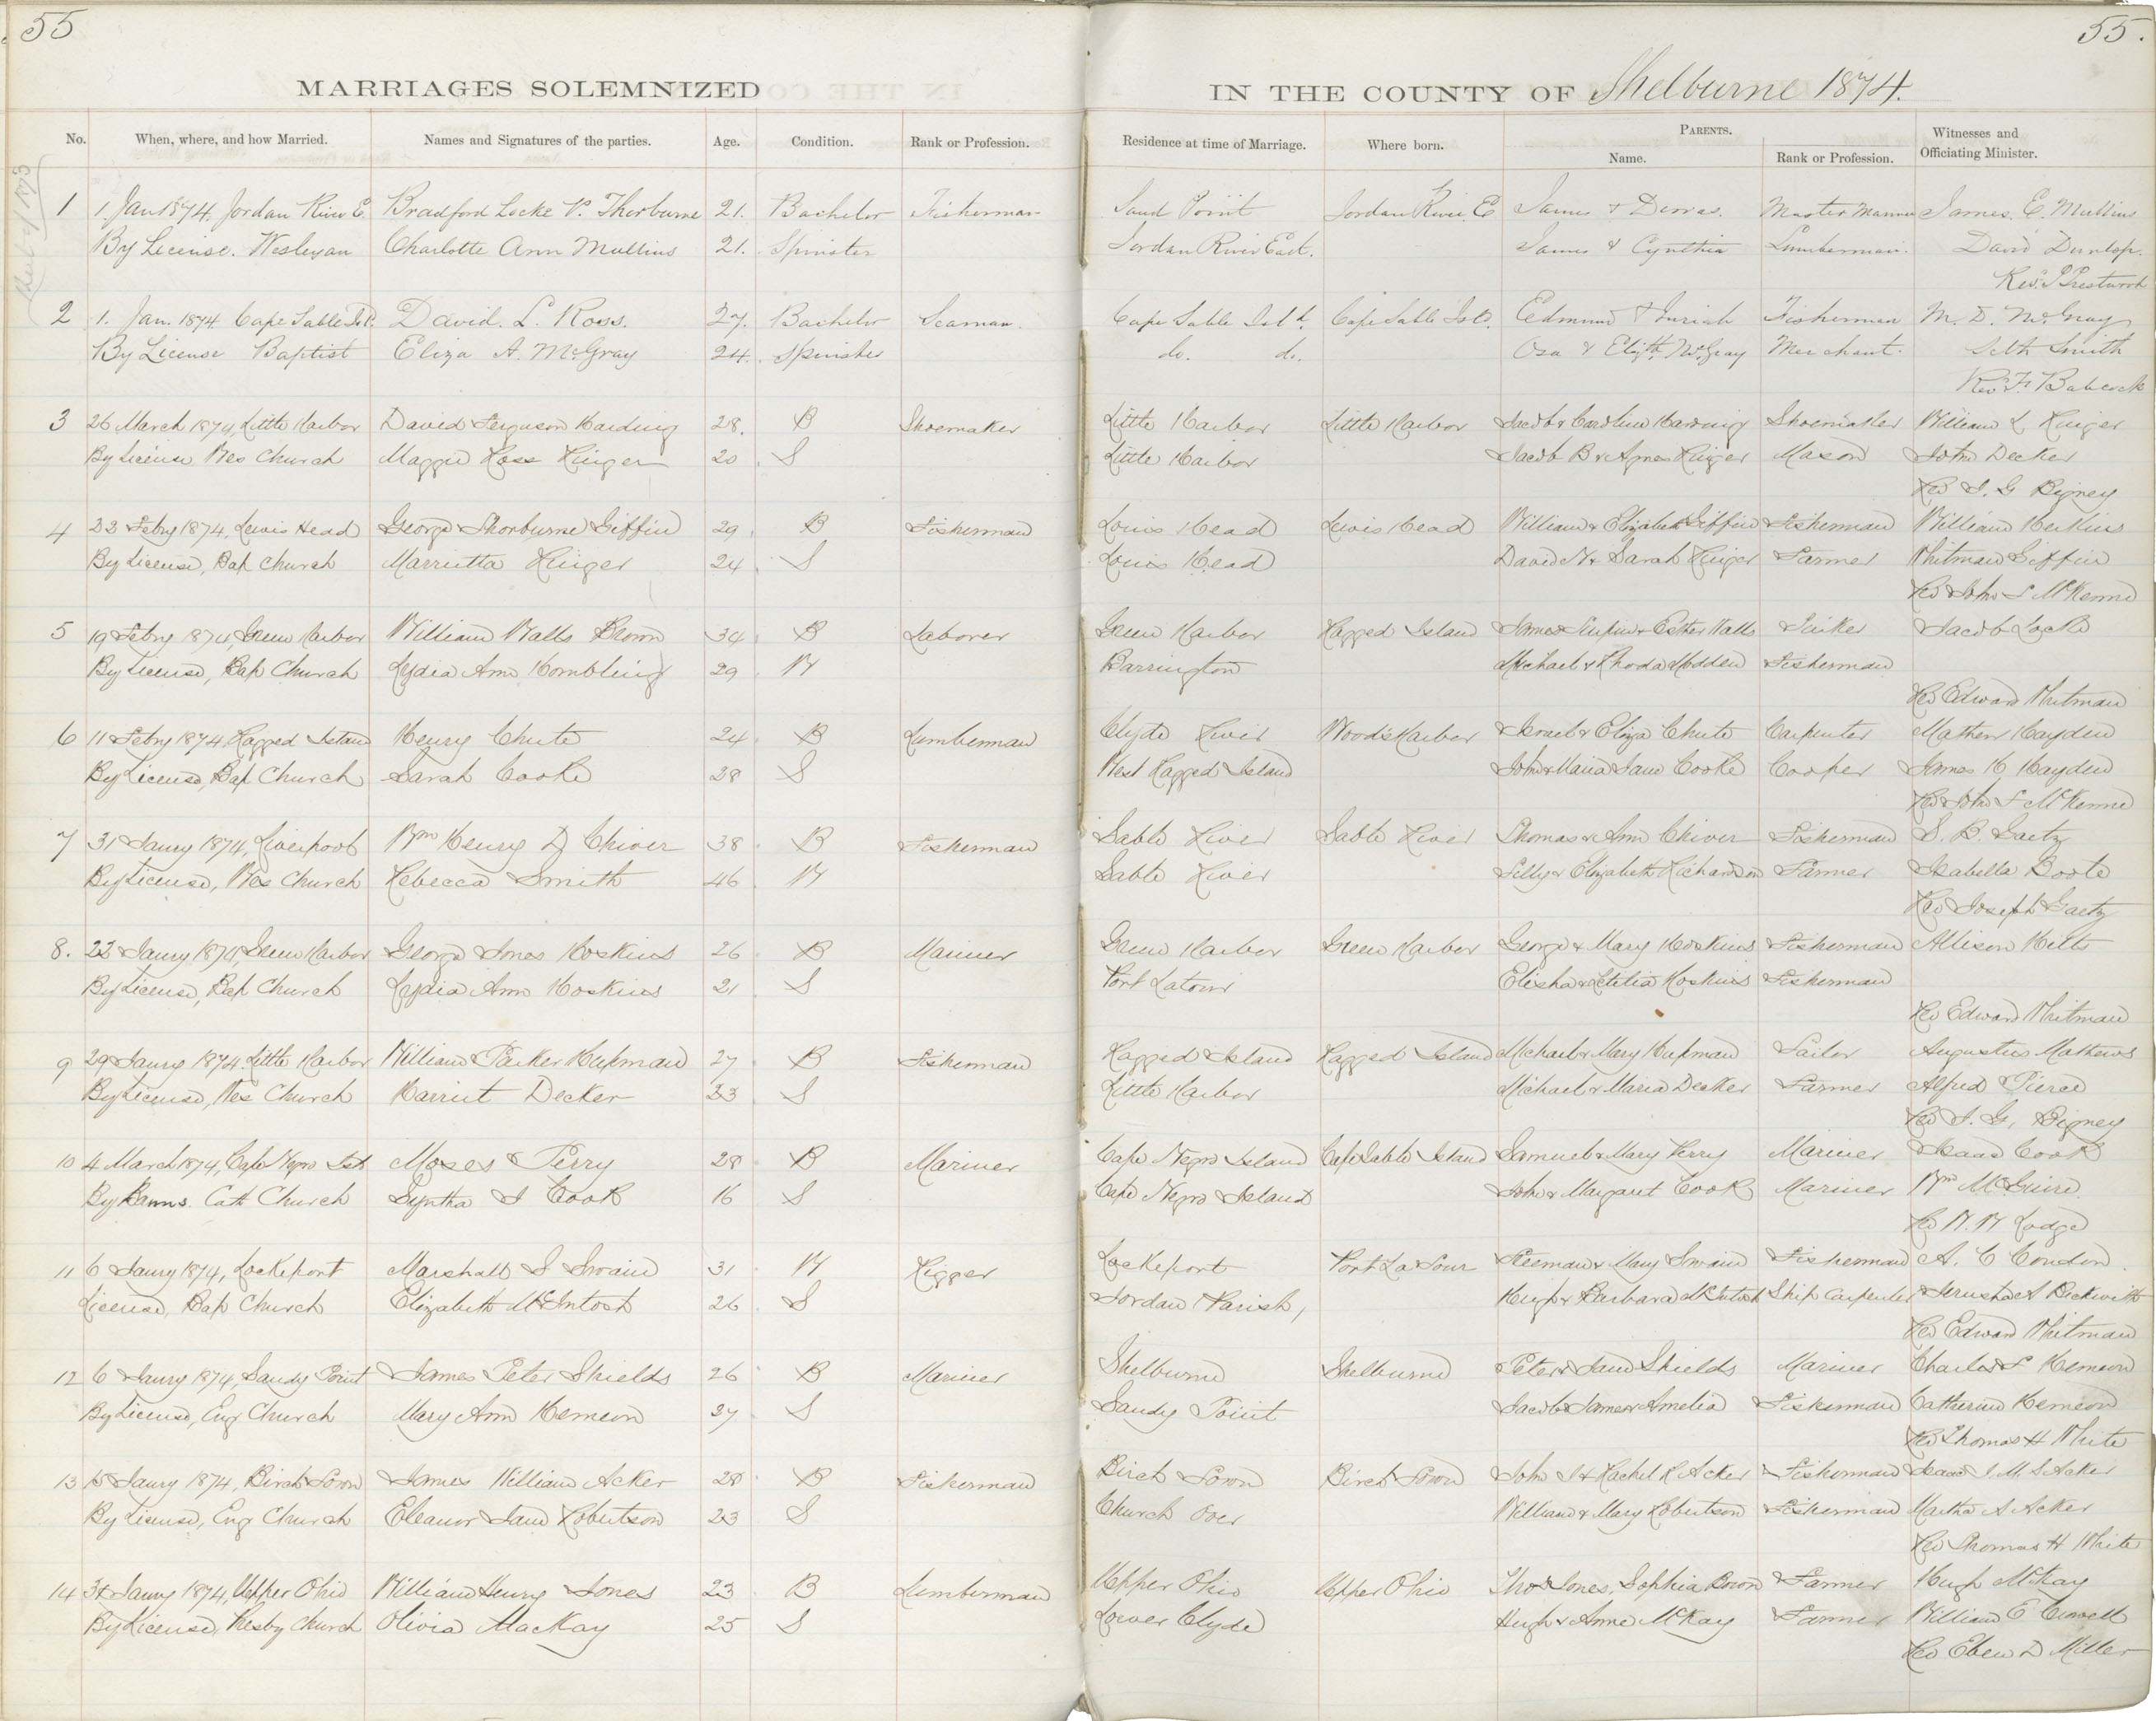 55
55.
MARRIAGES SOLEMNIZED
IN THE COUNTY OF Shelburne 1874.
No. When, where, and how Married. Names and Signatures of the parties. Age. Condition. Rank or Profession. Residence at time of Marriage. Where born. PARENTS. Name. Rank or Profession. Witnesses and Officiating Minister.
1 1. Jan 1874. Jordan River E. Bradford Locke P. Thorburne 21. Bachelor Fisherman Sand Point Jordan River E James & Dorcas. Master Mariner James. E. Mullins
By License. Wesleyan Charlotte Ann Mullins 21. Spinster Jordan River East. James & Cynthia Lumberman. David Dunlop.
Rev. J Prestwood
2 1. Jan. 1874 Cape Sable Isd. David. L. Ross. 27. Bachelor Seaman. Cape Sable Isld. Cape Sable Isld. Edmund & Fisherman M. D. McGray
By License Baptist Eliza A. McGray 24. Spinster do. do. Asa & Elizth. McGray Merchant. Seth Smith
Rev. F. Babcock
3 26 March 1874, Little Harbor David Ferguson Harding 28. B Shoemaker Little Harbor Little Harbor Jacob & Caroline Harding Shoemaker William L Ringer
By License Wes Church Maggie Ross Ringer 20 S Little Harbor Jacob B & Agnes Ringer Mason John Decker
Rev J. G Bigney
4 23 Febry 1874, Lewis Head George Thorburne Giffin 29 B Fisherman Louis Head Lewis Head William & Elizabeth Giffin Fisherman William Herkins
By License, Bap Church Marrietta Ringer 24 S Louis Head David N & Sarah Ringer Farmer Whitman Giffin
Rev John S McKenne
5 19 Febry 1874, Green Harbor William Walls Brown 34 B Laborer Green Harbor Ragged Island James & Esther Walls Jacob Locke
By License, Bap Church Lydia Ann 29 W Barrington Michael & Rhoda Madden Fisherman
Rev Edward Whitman
6 11 Febry 1874 Ragged Island Henry Chute 24 B Lumberman Clyde River Woods Harbor Israel & Eliza Chute Carpenter Mathew Hayden
By License, Bap Church Sarah Cooke 28 S West Ragged Island John & Maria Jane Cooke Cooper James H Hayden
Rev John S McKenne
7 31 Janry 1874, Liverpool Wm Henry D Chiver 38 B Fisherman Sable River Sable River Thomas & Ann Chiver Fisherman S. B. Gaetz
By License, Wes Church Rebecca Smith 46 W Sable River & Elizabeth Richardson Farmer Isabella Boole
Rev Joseph Gaetz
8. 22 Janry 1874, Green Harbor George Jones Hoskins 26 B Mariner Green Harbor Green Harbor George & Mary Hoskins Fisherman Allison Hills
By License, Bap Church Lydia Ann Hoskins 21 S Port Latour Elisha & Letitia Hoskins Fisherman
Rev Edward Whitman
9 29 Janry 1874. Little Harbor William Parker Hupman 27 B Fisherman Ragged Island Ragged Island Michael & Mary Hupman Sailor Augustus Mathews
By License, Wes Church Harriet Decker 23 S Little Harbor Michael & Maria Decker Farmer Alfred Pierce
Rev J. G, Bigney
10 4 March 1874, Cape Negro Isd Moses Perry 28 B Mariner Cape Negro Island Cape Sable Island Samuel & Mary Perry Mariner Isaac Cook
By Banns. Cath Church Syntha J Cook 16 S Cape Negro Island John & Margaret Cook Mariner Wm McGuire
Rev W. W Lodge
11 6 Janry 1874, Lockeport Marshall S Swain 31 W Rigger Lockeport Port La Tour Freeman & Mary Swain Fisherman A. C Condon.
License, Bap Church Elizabeth McIntosh 26 S Jordan Parish, Hugh & Barbara McIntosh Ship Carpenter Jerusha A Beckwith
Rev Edward Whitman
12 6 Janry 1874, Sandy Point James Peter Shields 26 B Mariner Shelburne Shelburne Peter & Jane Shields Mariner Charles S Hemeon
By License, Eng Church Mary Ann Hemeon 27 S Sandy Point Jacob James & Amelia Fisherman Catherine Hemeon
Rev Thomas H White
13 15 Janry 1874, Birch Town James William Acker 28 B Fisherman Birch Town Birch Town John J & Rachel R Acker Fisherman Isaac J. M. S Acker
By License, Eng Church Eleanor Jane Robertson 23 S Church Over William & Mary Robertson Fisherman Martha A Acker
Rev Thomas H White
14 31 Janry 1874, Upper Ohio William Henry Jones 23 B Lumberman Upper Ohio Upper Ohio Thos Jones, Sophia Bower Farmer Hugh McKay
By License, Presby Church Olivia MacKay 25 S Lower Clyde Hugh & Anne McKay Farmer William E Crowell
Rev Eben D Miller